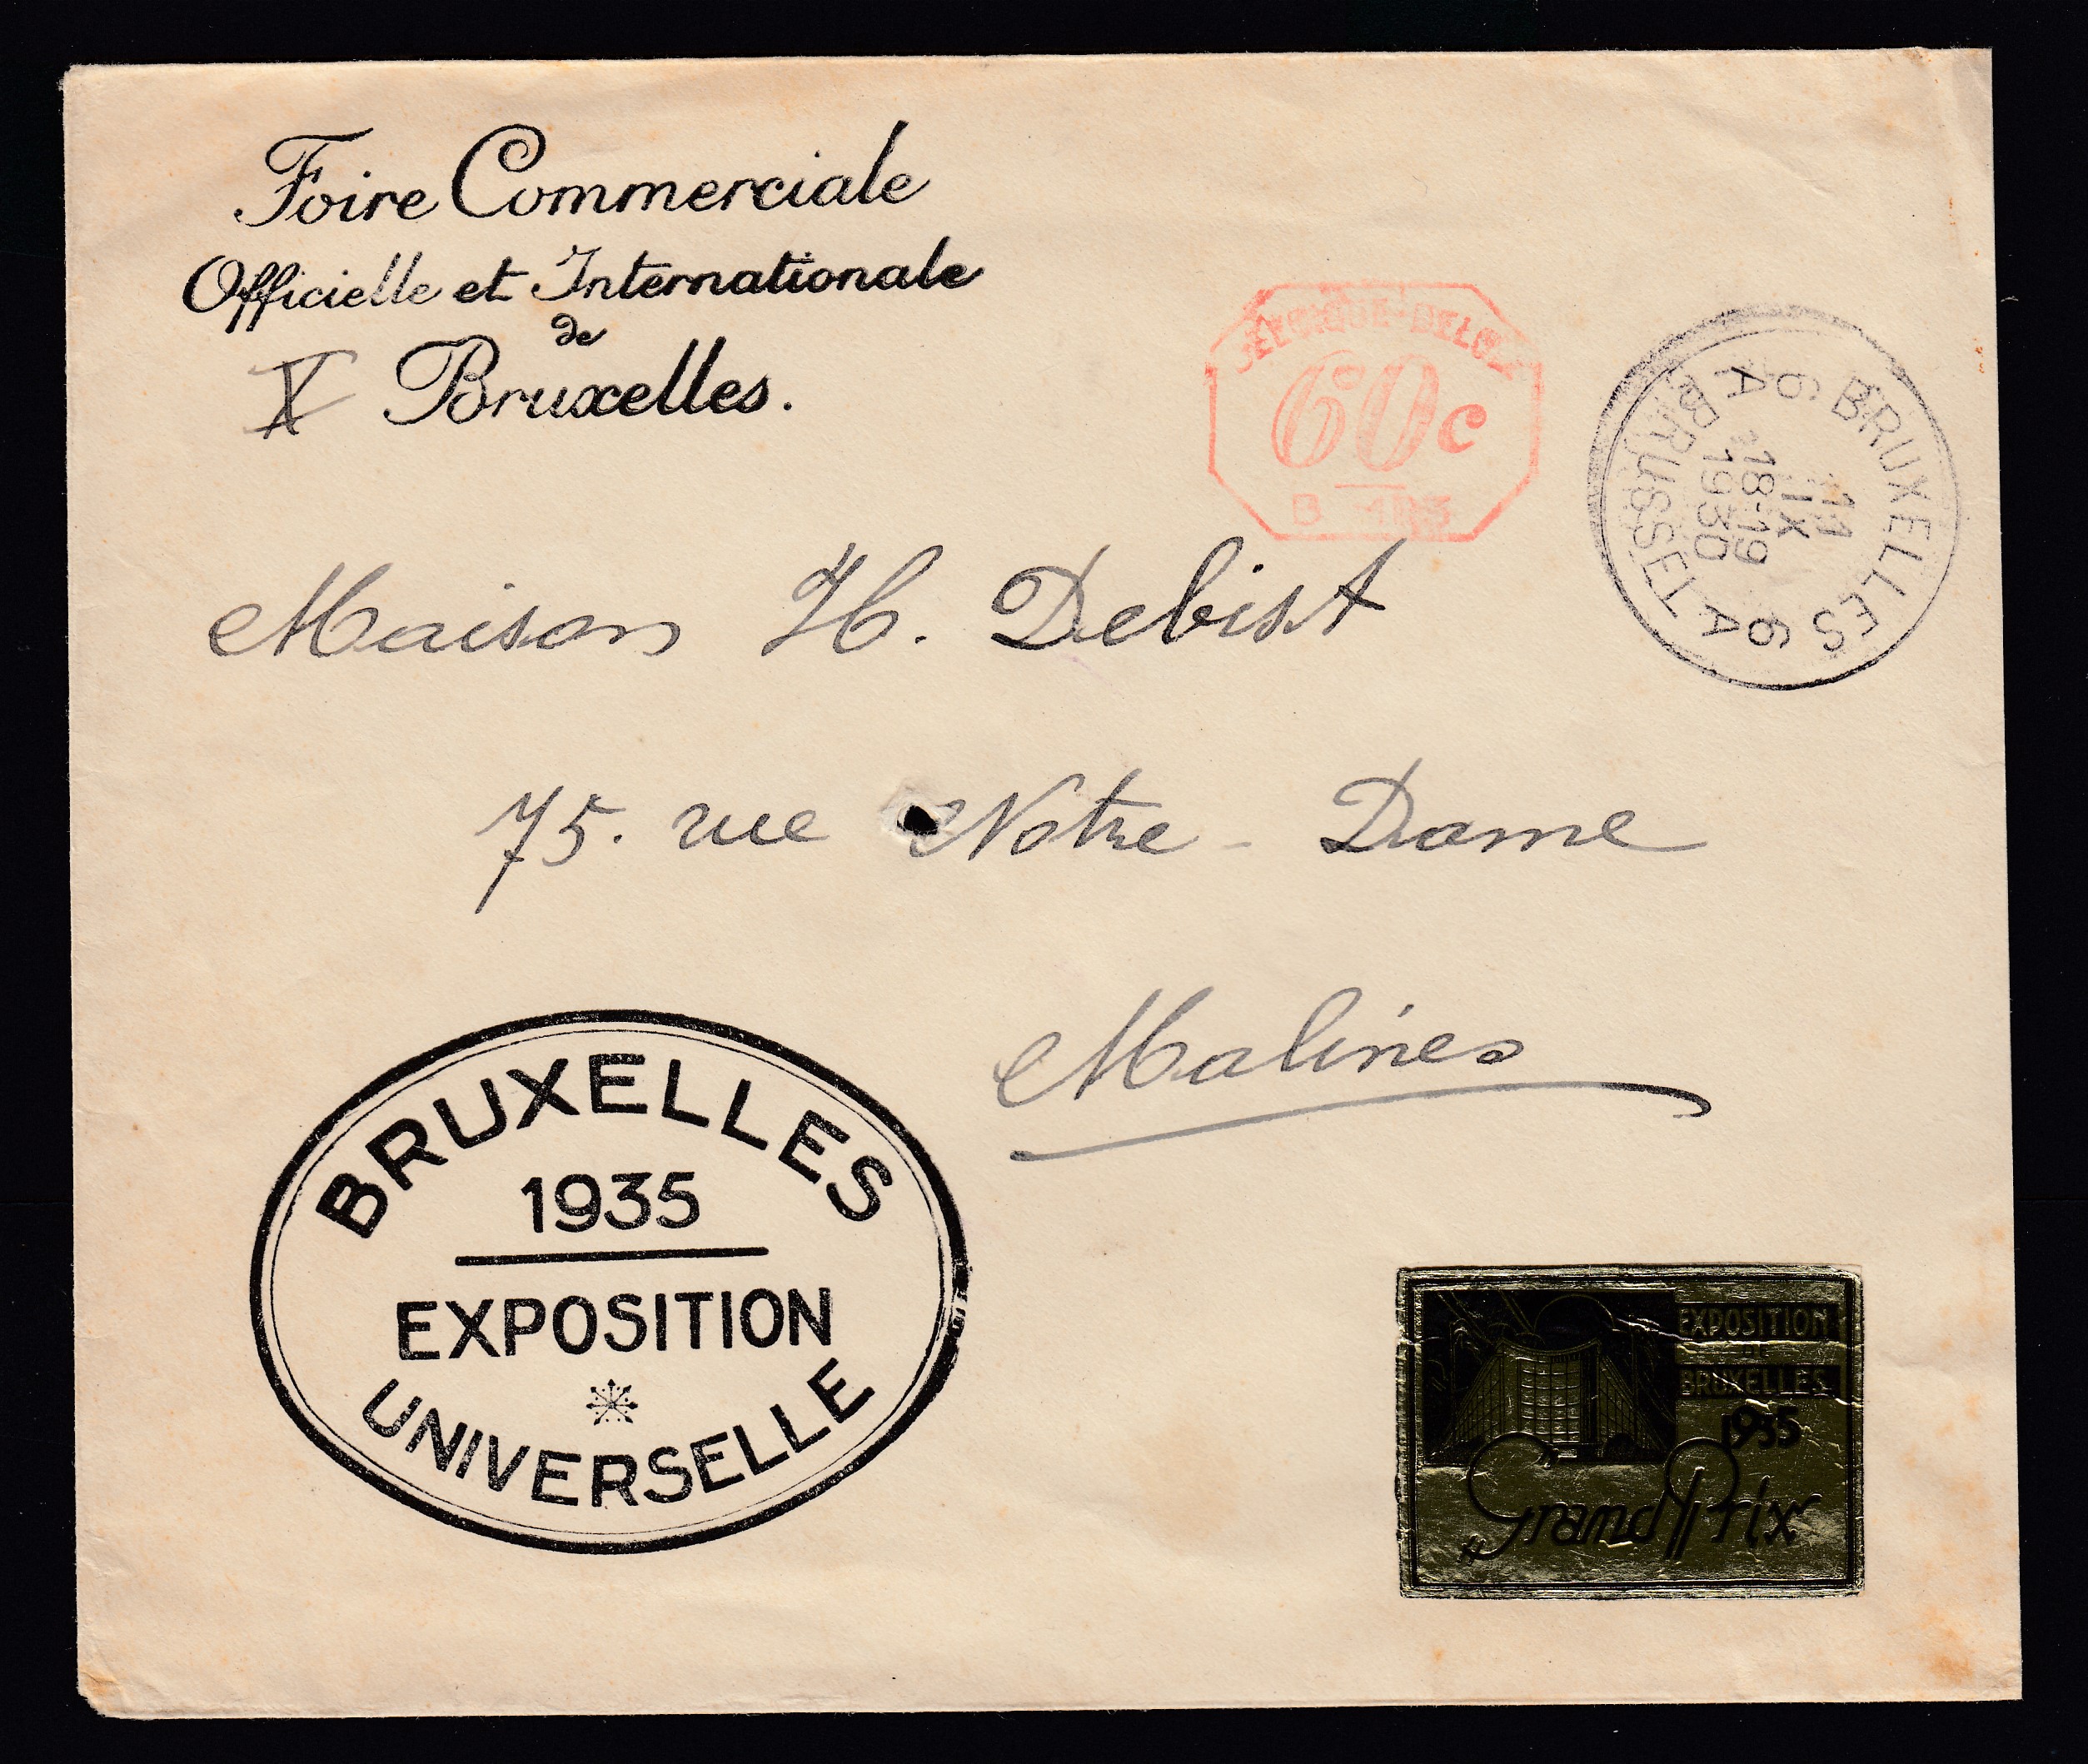 Foire Commerciale
Officielle et Internationale
de
X Bruxelles.
BELGIQUE-BELGIË
60c
B
BRUXELLES 6A
6A BRUSSEL
11
IX
18-19
1930
Maison H. Debist
75. rue Notre-Dame
Malines
BRUXELLES
1935
EXPOSITION
UNIVERSELLE
EXPOSITION
DE
BRUXELLES
1935
Grand Prix